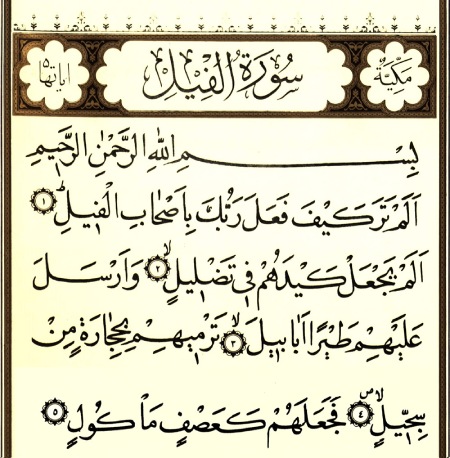 مَكِّيَّةٌ سُورَةُ الْفِيلِ اٰيَاتُهَا ٥
بِسْمِ اللّٰهِ الرَّحْمٰنِ الرَّحٖيمِ
اَلَمْ تَرَ كَيْفَ فَعَلَ رَبُّكَ بِاَصْحَابِ الْفٖيلِۜ ﴿١﴾
اَلَمْ يَجْعَلْ كَيْدَهُمْ فٖى تَضْلٖيلٍۙ ﴿٢﴾ وَاَرْسَلَ
عَلَيْهِمْ طَيْرًا اَبَابٖيلَۙ ﴿٣﴾ تَرْمٖيهِمْ بِحِجَارَةٍ مِنْ
سِجّٖيلٍۙۖ ﴿٤﴾ فَجَعَلَهُمْ كَعَصْفٍ مَأْكُولٍ ﴿٥﴾